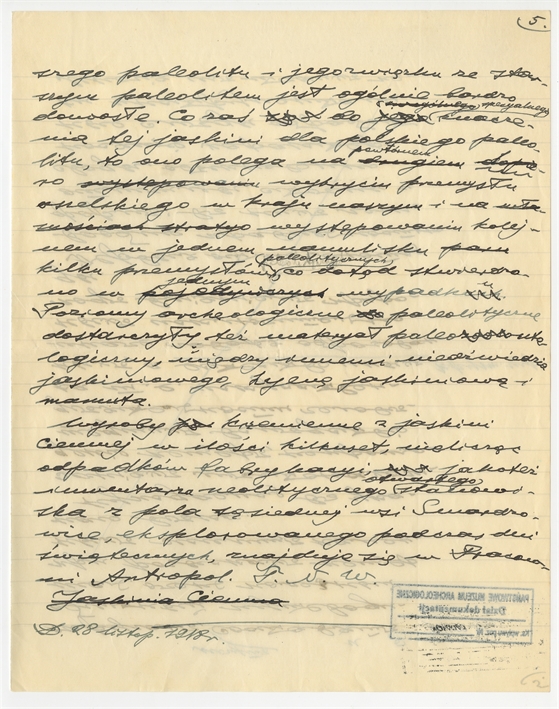 5.
szego paleolitu i jego związku ze star-
szym paleolitem jest ogólnie bardzo
doniosłe. Co zaś do specyalnego znacze-
nia tej jaskini dla polskiego paleo-
litu, to ono polega na powtórnem
wykryciu przemysłu
w kraju naszym i na
występowaniu kolej-
nem w jednem namulisku paru
kilku przemysłów paleolitycznych, co dotąd stwierdzo-
no w jedynym wypadku.
Poziomy archeologiczne paleolityczne
dostarczyły też materyał paleonto-
logiczny, między innemi niedźwiedzia
jaskiniowego, hyenę jaskiniową i
mamuta.
Wyroby krzemienne z jaskini
Ciemnej w ilości kilkuset, nie licząc
odpadków fabrykacyi, jakoteż
inwentarz neolitycznego otwartego stanowi-
ska z pola sąsiedniej wsi Smardzo-
wice, eksplorowanego podczas dni
świątecznych, znajduje się w Pracow-
ni Antropol. T. N. W.
Jaskinia Ciemna
D. 28 listop. 1918 r.
PAŃSTWOWE MUZEUM ARCHEOLOGICZNE
Dział dokumentacji